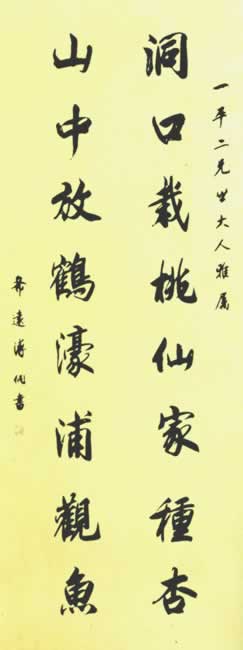 一平二兄世大人雅屬
洞口栽桃仙家種杏
山中放鶴濠浦觀魚
希遠溥佩書